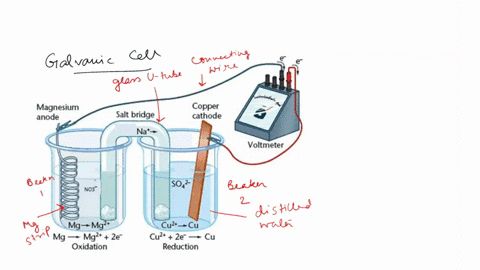 Galvanic Cell
glass U-tube
Connecting wire
e⁻
e⁻
Magnesium anode
Salt bridge
Copper cathode
Na⁺→
Voltmeter
Beaker 1
NO3⁻
SO₄²⁻
Beaker 2
distilled water
Mg strip
Mg→Mg²⁺
Cu²⁺→Cu
Mg → Mg²⁺ + 2e⁻
Cu²⁺ + 2e⁻ → Cu
Oxidation
Reduction